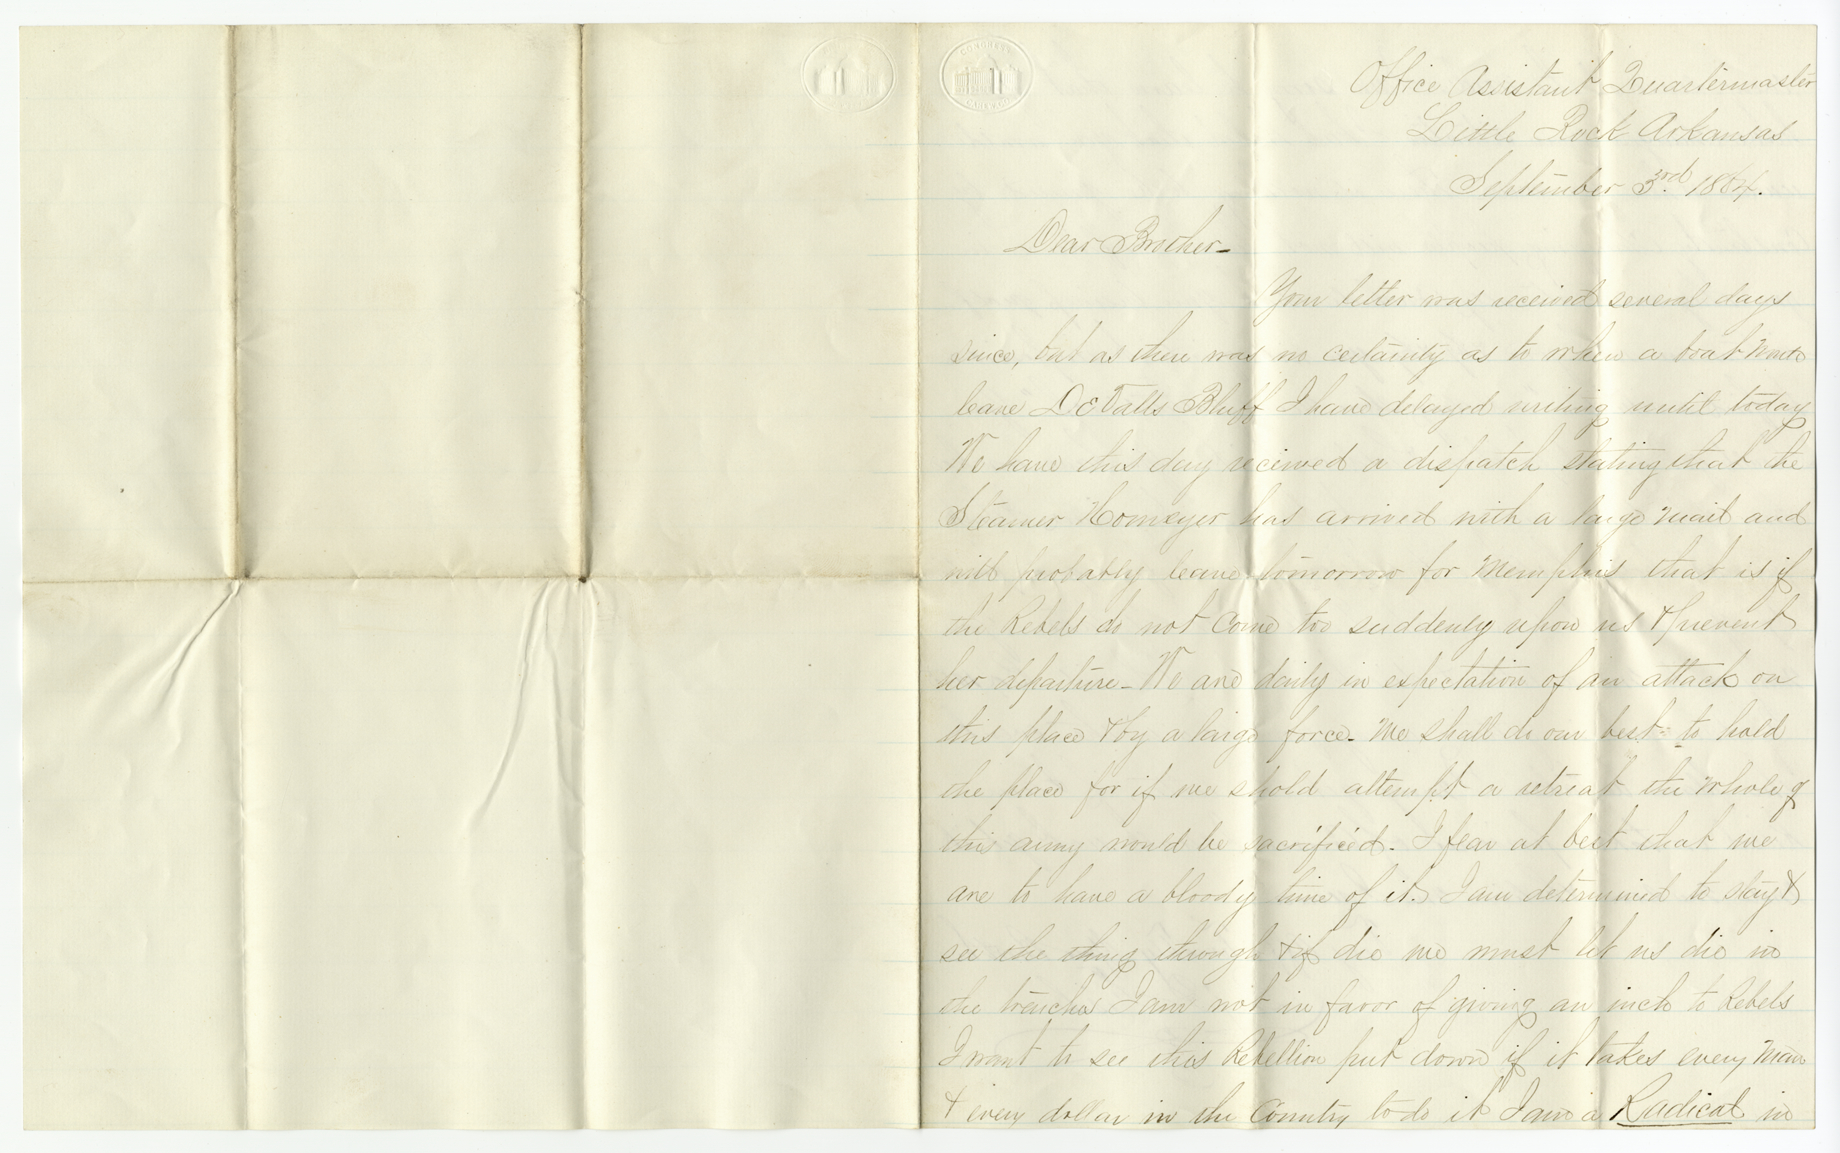 CONGRESS
Office Assistant Quartermaster
Little Rock Arkansas
September 3rd 1864.
Dear Brother-
Your letter was received several days
since, but as there was no certainty as to when a boat would
leave DeValls Bluff I have delayed writing until today
We have this day received a dispatch stating that the
Steamer Homeyer has arrived with a large mail and
will probably leave tomorrow for Memphis that is if
the Rebels do not come too suddenly upon us & prevent
her departure - We are daily in expectation of an attack on
this place & by a large force - We shall do our best - to hold
the place for if we shold attempt a retreat the whole of
this army would be sacrificed. I fear at best that we
are to have a bloody time of it. I am determined to stay &
see the thing through & if die we must let us die in
the trenches I am not in favor of giving an inch to Rebels
I want to see this Rebellion put down if it takes every man
& every dollar in the Country to do it I am a Radical in